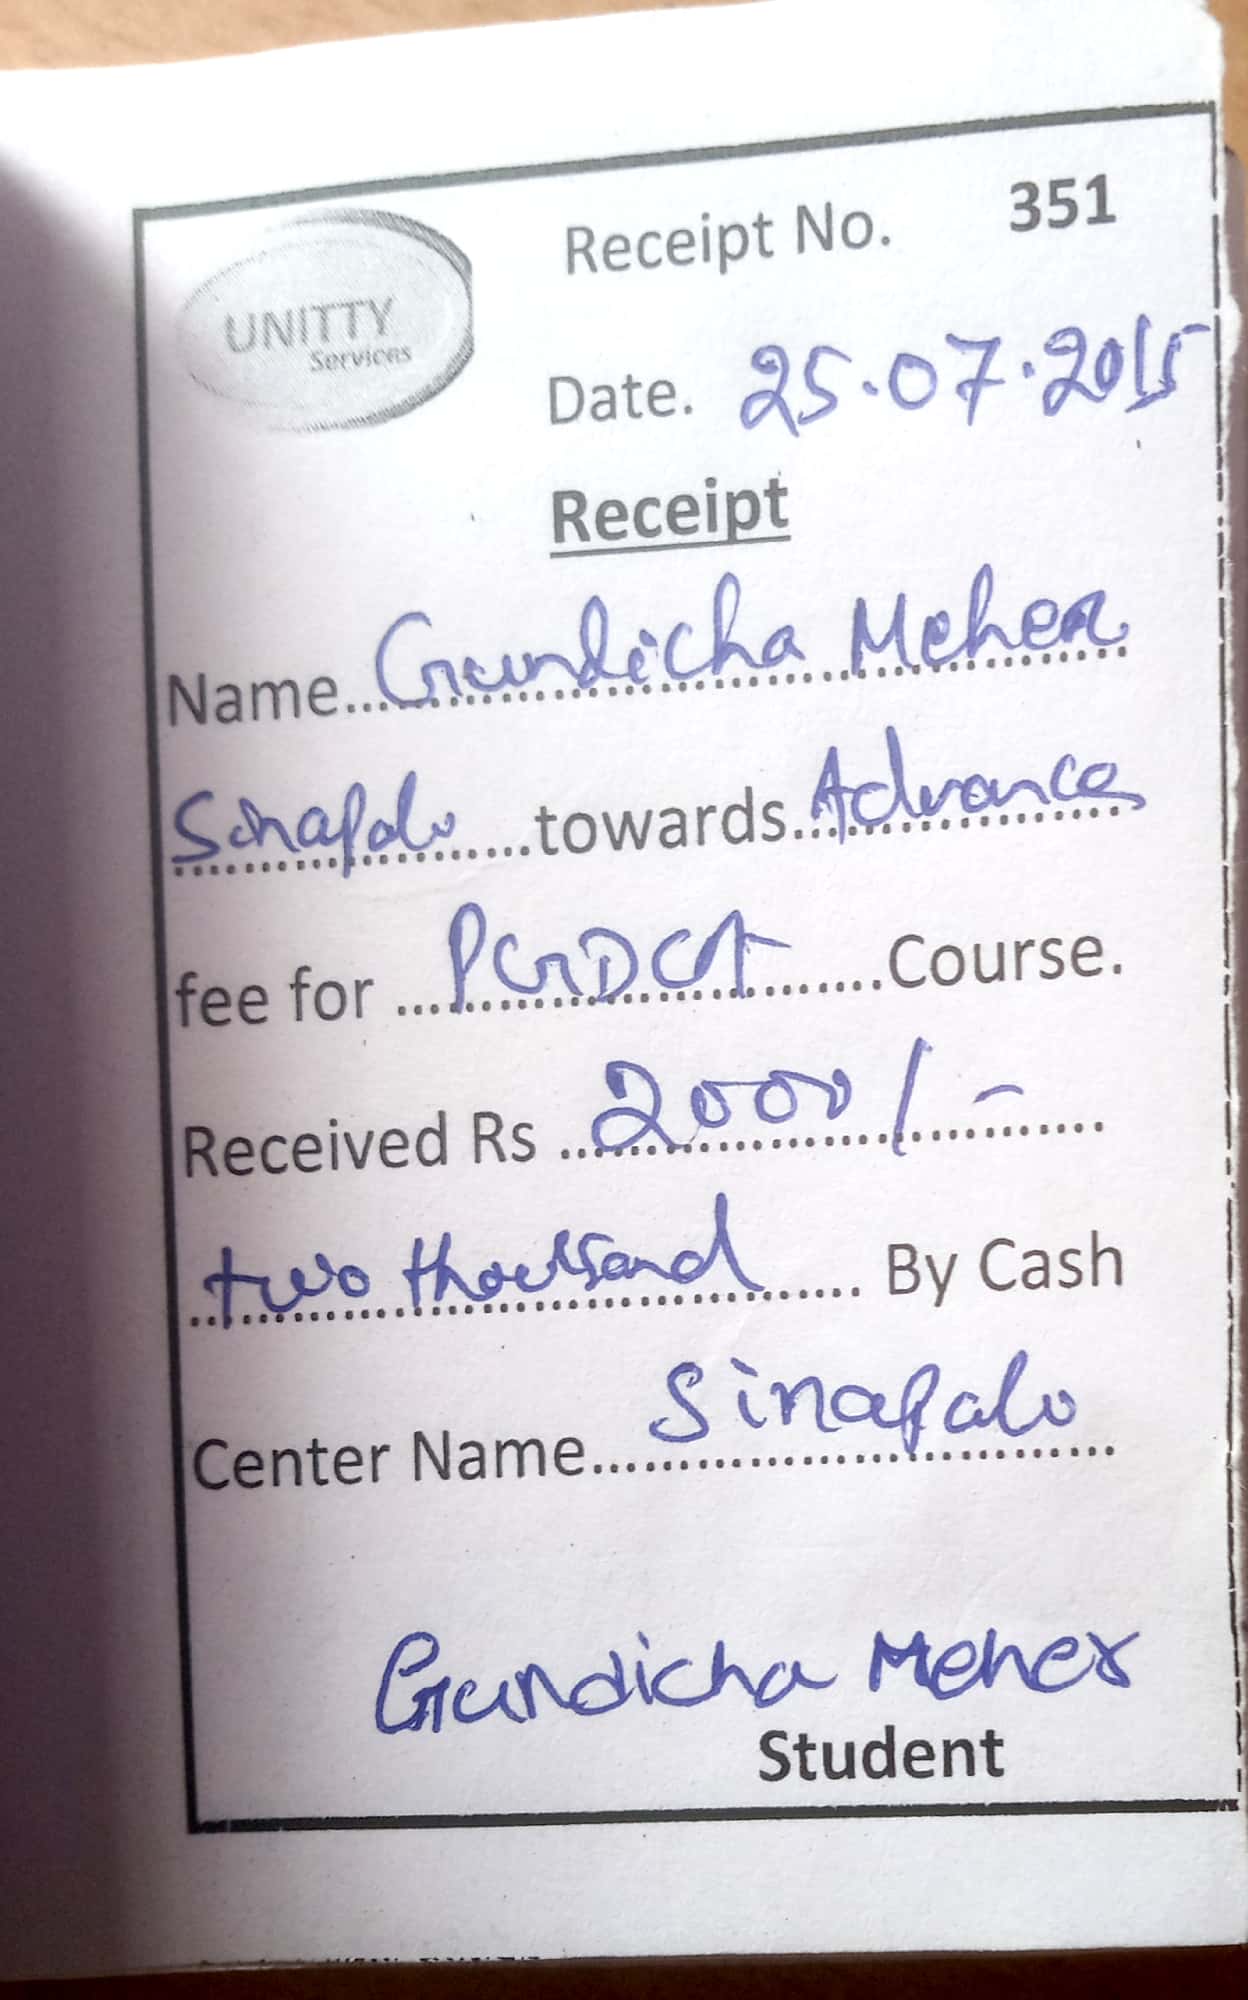 UNITTY
Services
Receipt No. 351
Date. 25.07.2015
Receipt
Name...Gundicha Meher
Sinapali......towards...Advance
fee for ...PGDCA.......Course.
Received Rs ...2000/-
two thousand...... By Cash
Center Name...Sinapali
Gundicha Meher
Student